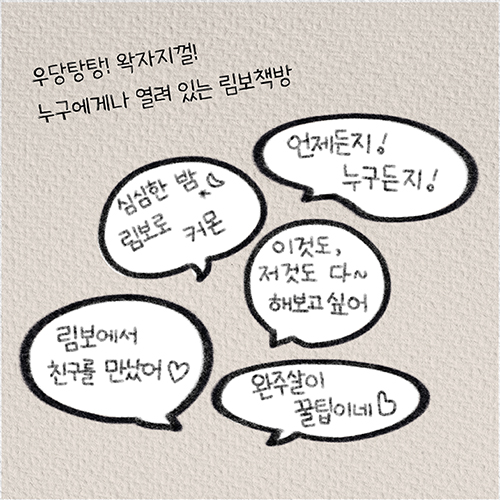 우당탕탕! 왁자지껄!
누구에게나 열려 있는 림보책방
언제든지!
누구든지!
심심한 밤
림보로 커몬
이것도,
저것도 다~
해보고싶어
림보에서
친구를 만났어♡
완주살이
꿀팁이네♡